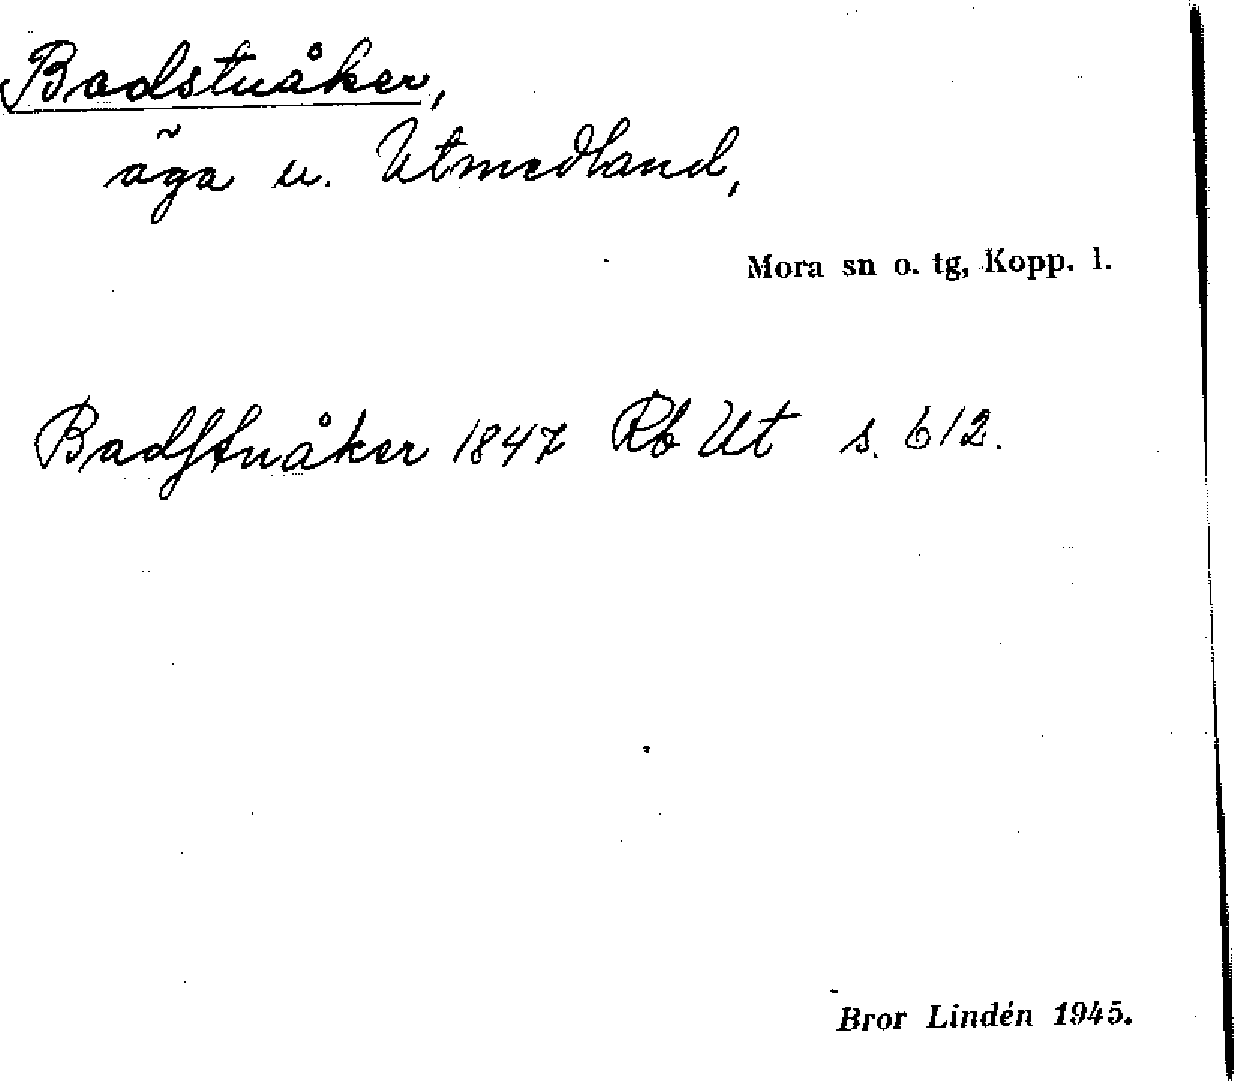 Badstuåker,
äga u. Utmedland,
Mora sn o. tg, Kopp. l.
Badstuåker 1847 Rb Ut s. 612.
Bror Lindén 1945.